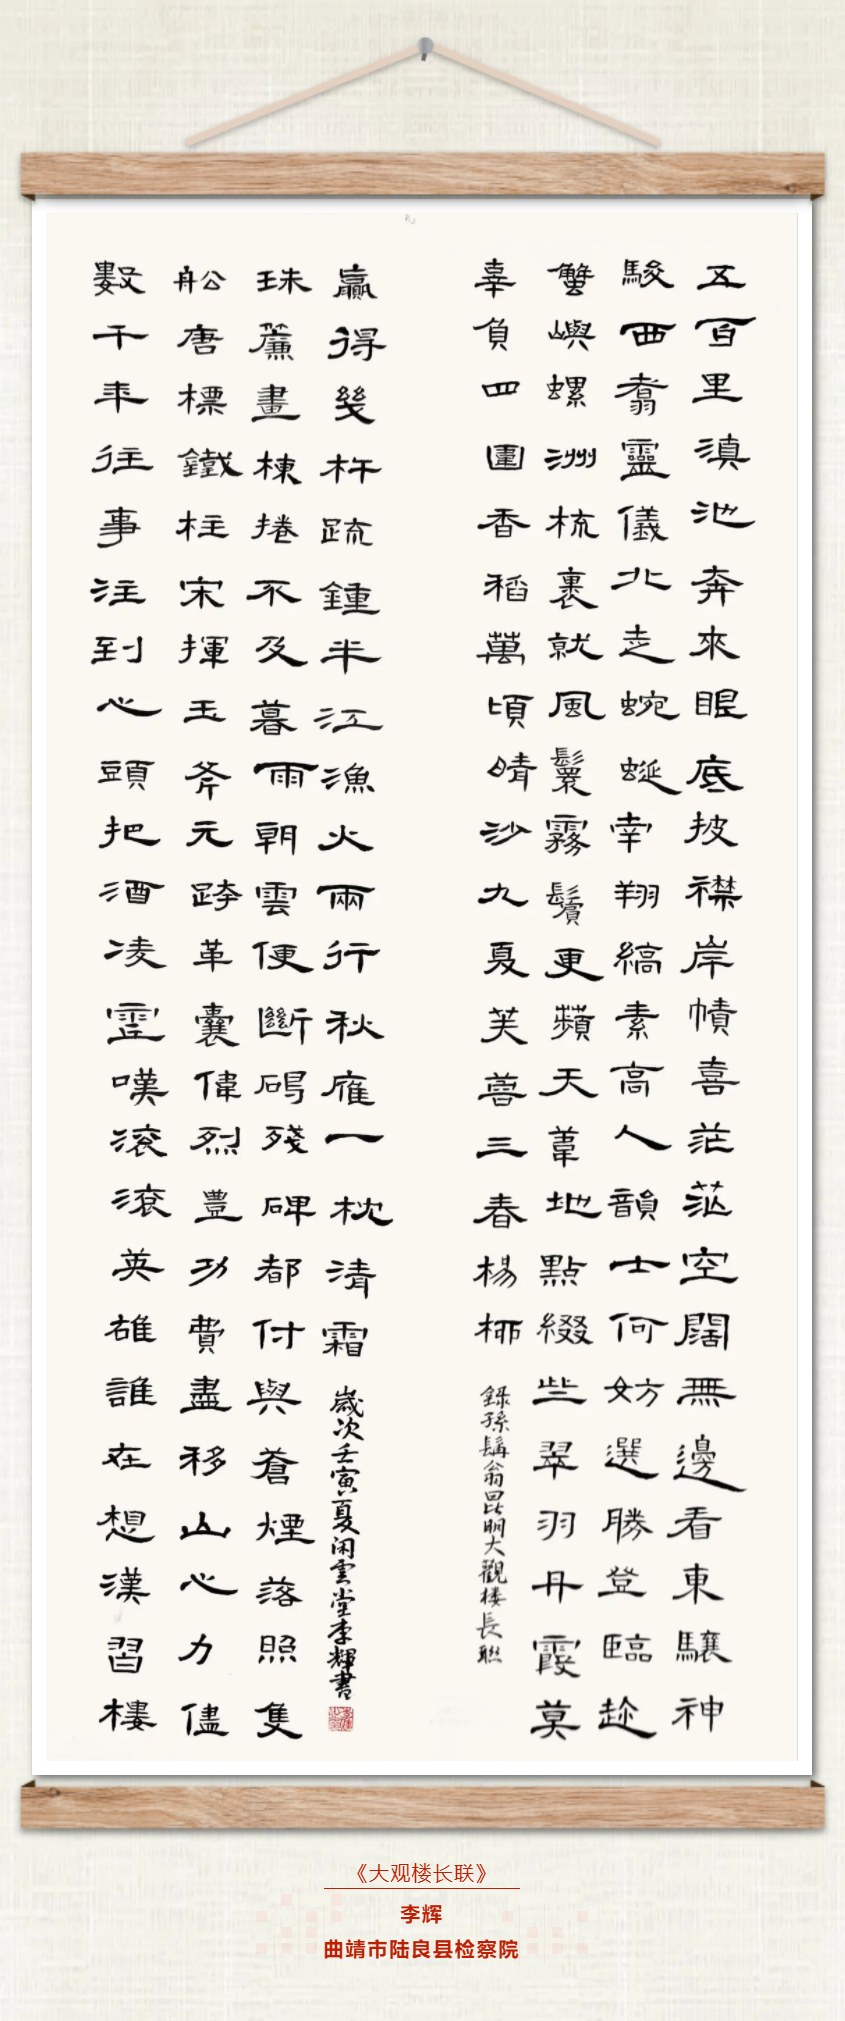 五百里滇池奔來眼底披襟岸幘喜茫茫空闊無邊看東驤神
駿西翥靈儀北走蜿蜒南翔縞素高人韻士何妨選勝登臨趁
蟹嶼螺洲梳裹就風鬟霧鬢更蘋天葦地點綴些翠羽丹霞莫
辜負四圍香稻萬頃晴沙九夏芙蓉三春楊柳
錄孫髯翁昆明大觀楼長聯
數千年往事注到心頭把酒凌虛嘆滾滾英雄誰在想漢習樓
船唐標鐵柱宋揮玉斧元跨革囊偉烈豐功費盡移山心力儘
珠簾畫棟捲不及暮雨朝雲便斷碣殘碑都付與蒼煙落照隻
贏得幾杵疏鍾半江漁火兩行秋雁一枕清霜
歲次壬寅夏闲雲堂李輝書
《大观楼长联》
李辉
曲靖市陆良县检察院